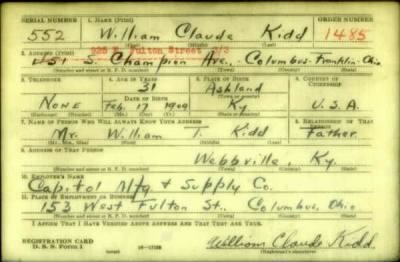 SERIAL NUMBER 1. NAME (Print) ORDER NUMBER
552 William Claude Kidd 1485
2. ADDRESS (Print) 925 E. Fulton Street
S. Champion Ave., Columbus-Franklin-Ohio
3. TELEPHONE 4. AGE IN YEARS 5. PLACE OF BIRTH 6. COUNTRY OF CITIZENSHIP
31 Ashland
DATE OF BIRTH
None Feb 17 1909 Ky U.S.A.
7. NAME OF PERSON WHO WILL ALWAYS KNOW YOUR ADDRESS 8. RELATIONSHIP OF THAT PERSON
Mr. William T. Kidd Father
(Mr., Mrs., Miss) (First) (Middle) (Last)
9. ADDRESS OF THAT PERSON
Webbville, Ky.
(Number and street or R. F. D. number) (Town) (County) (State)
10. EMPLOYER'S NAME
Capitol Mfg & Supply Co.
11. PLACE OF EMPLOYMENT OR BUSINESS
153 West Fulton St., Columbus, Ohio
(Number and street or R. F. D. number) (Town) (County) (State)
I AFFIRM THAT I HAVE VERIFIED ABOVE ANSWERS AND THAT THEY ARE TRUE.
REGISTRATION CARD
D. S. S. Form 1 William Claude Kidd
(Registrant's signature)